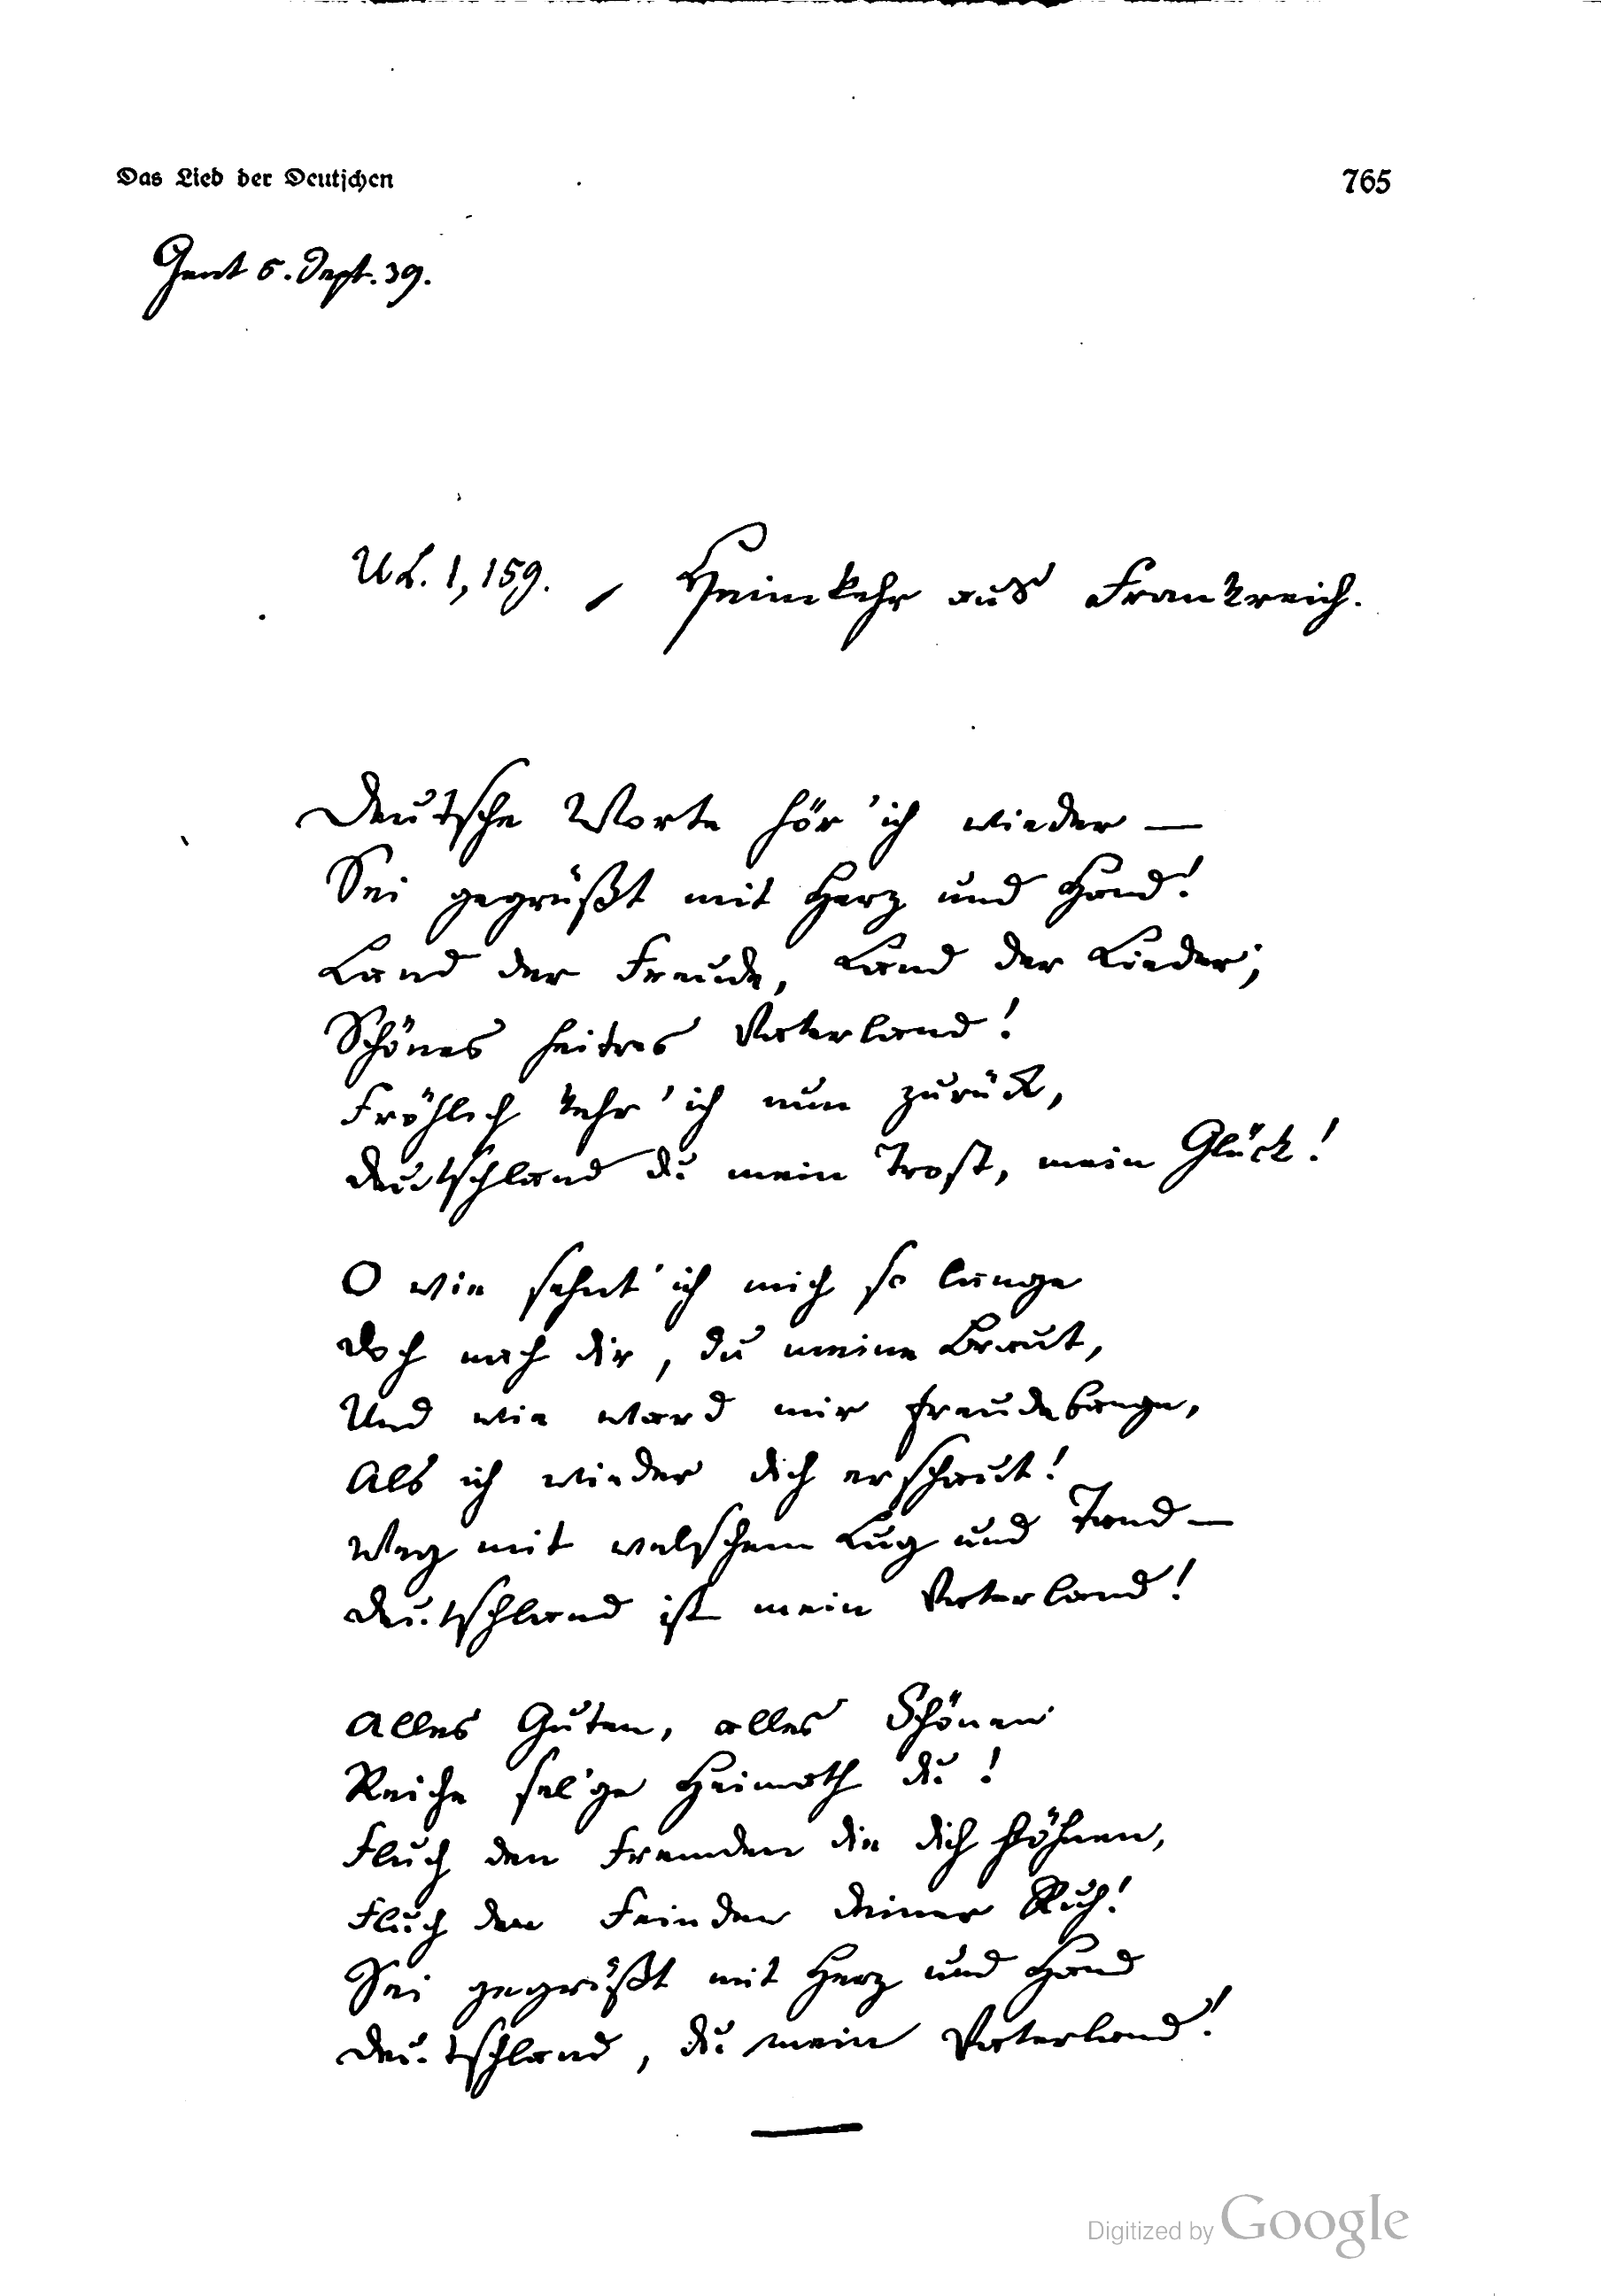 Das Lied der Deutschen 765
Gent 5. Sept. 39.
UL. 1, 159. Heimkehr aus Frankreich.
Deutsche Worte hör' ich wieder —
Sei gegrüßt mit Herz und Hand!
Land der Freude, Land der Lieder,
Schönes heitres Vaterland!
Fröhlich kehr' ich nun zurück,
Deutschland du mein Trost, mein Glück!
O wie sehnt' ich mich so lange
Doch nach dir, du meine Braut,
Und wie ward mir freudebange,
Als ich wieder dich erschaut!
Weg mit welschem Lug und Tand —
Deutschland ist mein Vaterland!
Alles Guten, alles Schönen
Reiche sel'ge Heimath du!
Fluch den Fremden die dich höhnen,
Fluch den Feinden deiner Ruh!
Sei gegrüßt mit Herz und Hand
Deutschland, du mein Vaterland!
Digitized by Google